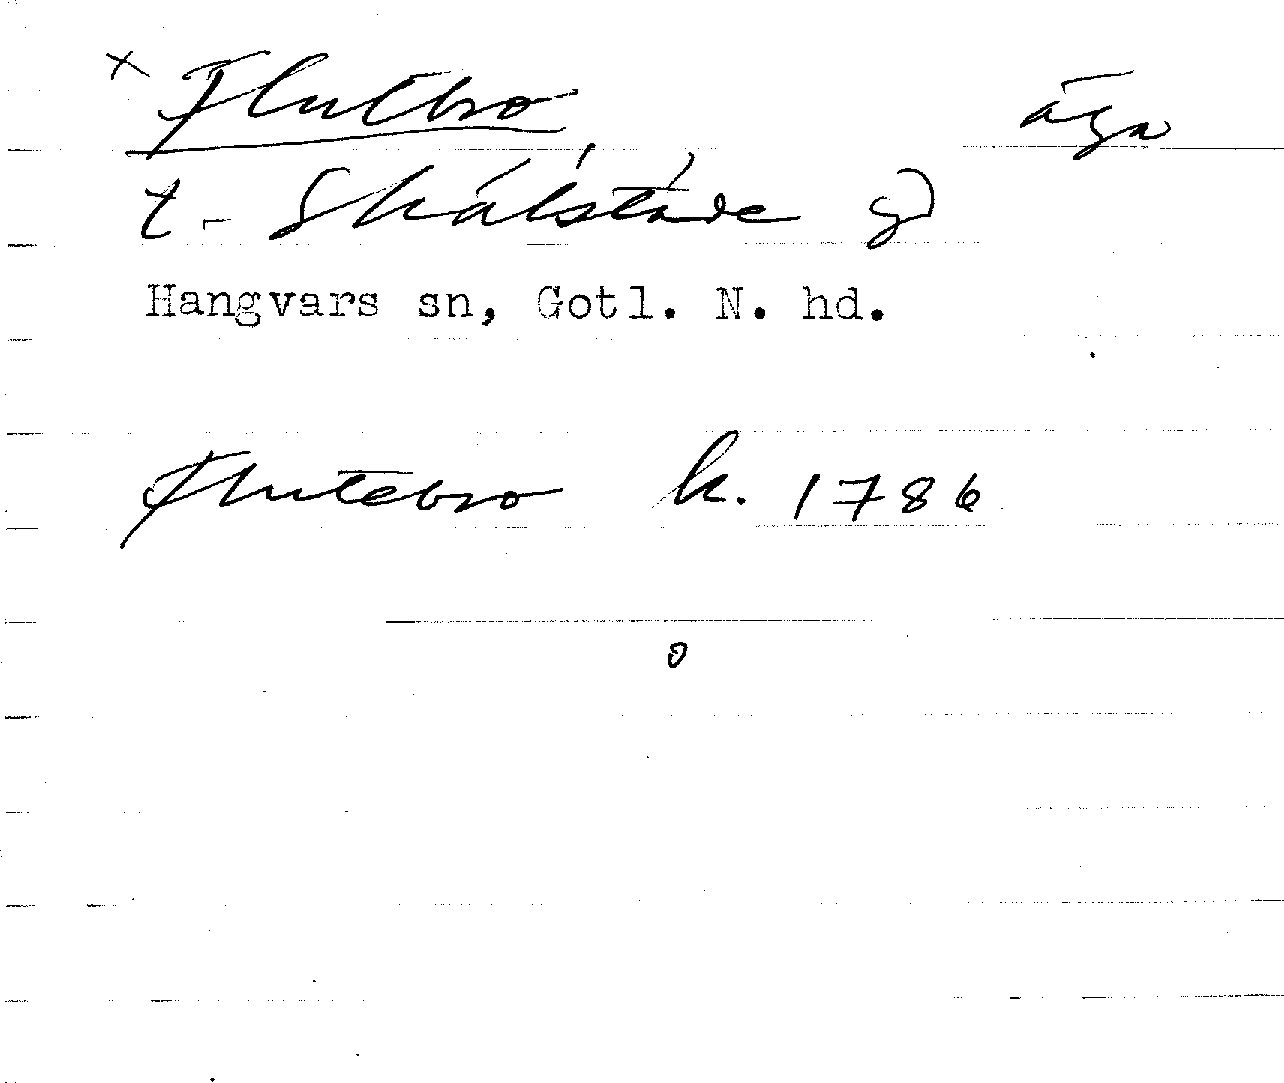 × Flutbro äga
t. Skälstäde gd
Hangvars sn, Gotl. N. hd.
Flutebro k. 1786